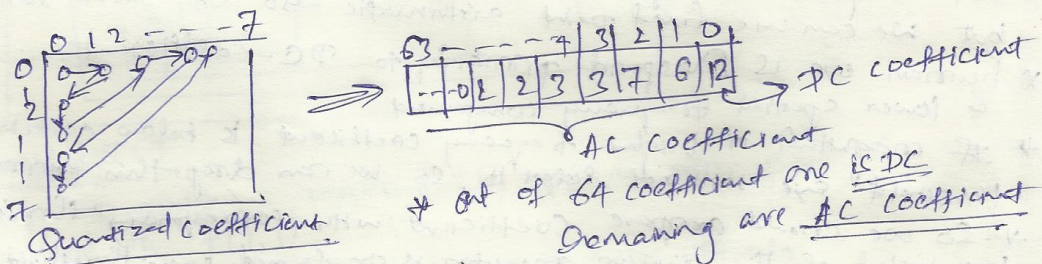 0 1 2 - - - 7
0
1
2
1
1
7
Quantized coefficient
63 - - - - 4 3 2 1 0
--- 0 2 2 3 3 7 6 12
DC coefficient
AC coefficient
* out of 64 coefficient one is DC
Remaining are AC coefficient